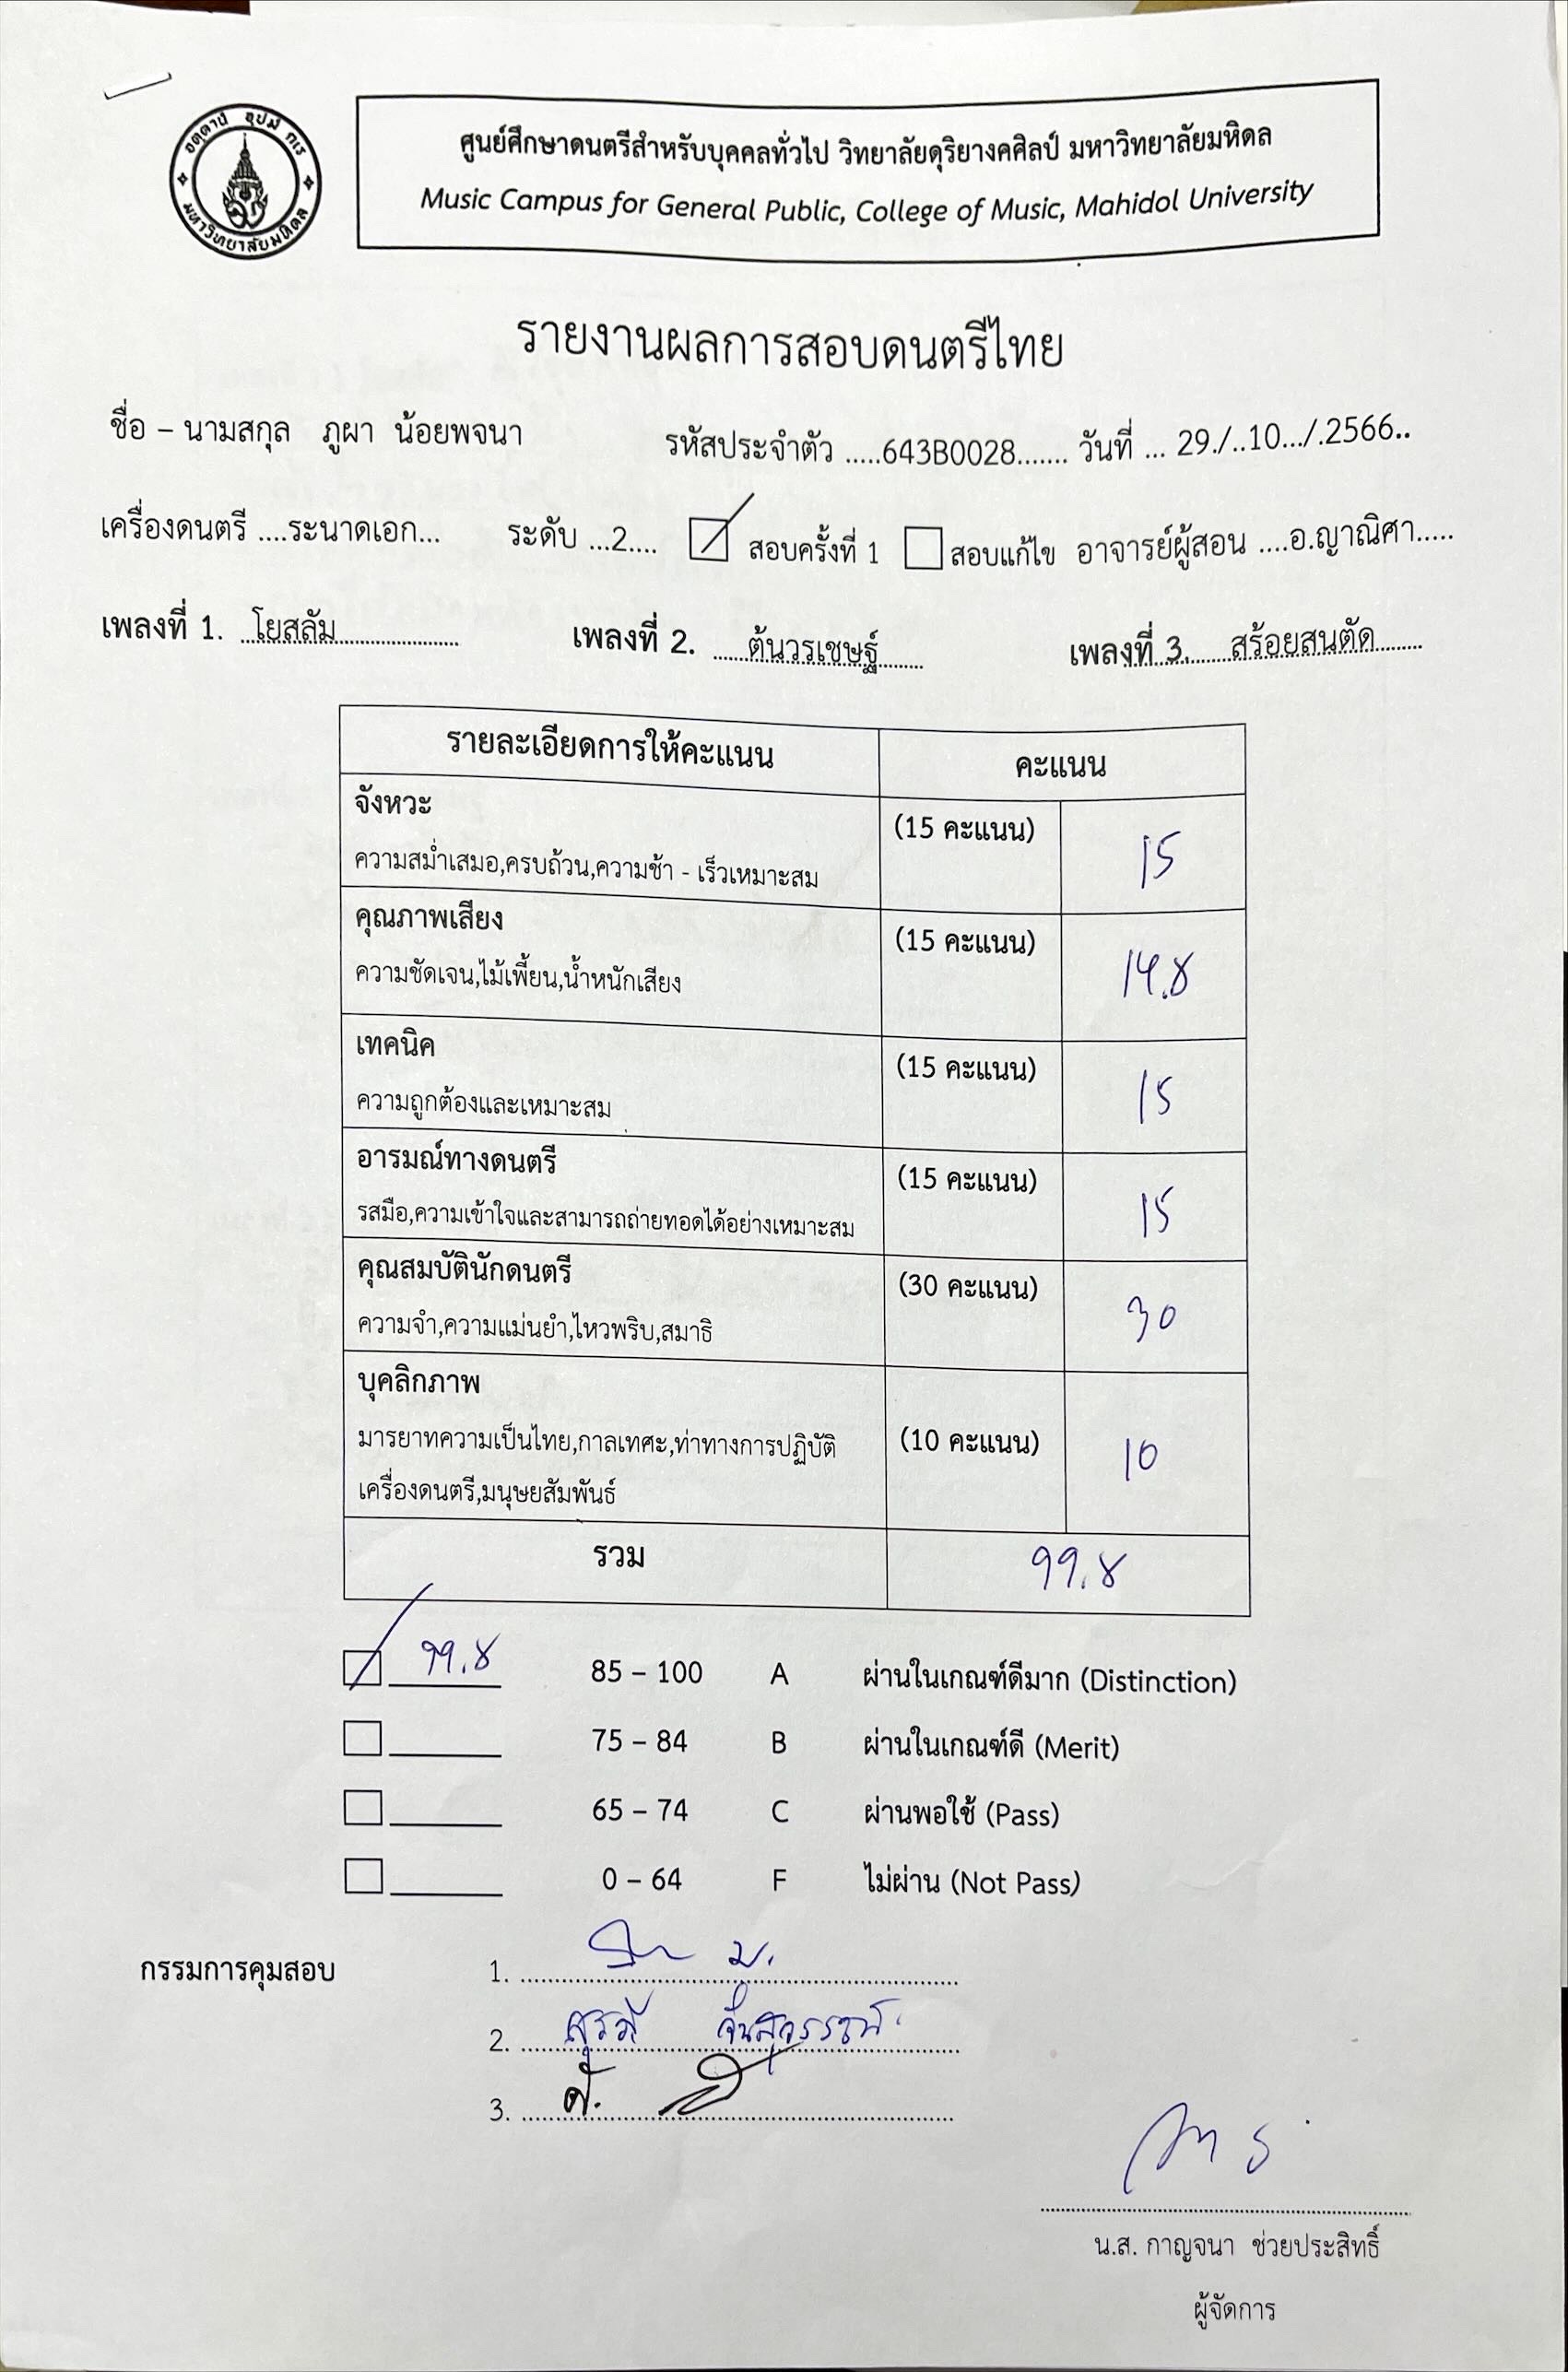 อตฺตานํ อุปมํ กเร
มหาวิทยาลัยมหิดล
ศูนย์ศึกษาดนตรีสำหรับบุคคลทั่วไป วิทยาลัยดุริยางคศิลป์ มหาวิทยาลัยมหิดล
Music Campus for General Public, College of Music, Mahidol University
รายงานผลการสอบดนตรีไทย
ชื่อ – นามสกุล ภูผา น้อยพจนา รหัสประจำตัว .....643B0028....... วันที่ ... 29./..10.../.2566..
เครื่องดนตรี ....ระนาดเอก... ระดับ ...2.... สอบครั้งที่ 1 สอบแก้ไข อาจารย์ผู้สอน ....อ.ญาณิศา.....
เพลงที่ 1. โยสลัม เพลงที่ 2. ต้นวรเชษฐ์ เพลงที่ 3. สร้อยสนตัด
รายละเอียดการให้คะแนน คะแนน
จังหวะ (15 คะแนน) 15
ความสม่ำเสมอ,ครบถ้วน,ความช้า - เร็วเหมาะสม
คุณภาพเสียง (15 คะแนน) 14.8
ความชัดเจน,ไม้เพี้ยน,น้ำหนักเสียง
เทคนิค (15 คะแนน) 15
ความถูกต้องและเหมาะสม
อารมณ์ทางดนตรี (15 คะแนน) 15
รสมือ,ความเข้าใจและสามารถถ่ายทอดได้อย่างเหมาะสม
คุณสมบัตินักดนตรี (30 คะแนน) 30
ความจำ,ความแม่นยำ,ไหวพริบ,สมาธิ
บุคลิกภาพ
มารยาทความเป็นไทย,กาลเทศะ,ท่าทางการปฏิบัติ (10 คะแนน) 10
เครื่องดนตรี,มนุษยสัมพันธ์
รวม 99.8
99.8 85 – 100 A ผ่านในเกณฑ์ดีมาก (Distinction)
75 – 84 B ผ่านในเกณฑ์ดี (Merit)
65 – 74 C ผ่านพอใช้ (Pass)
0 – 64 F ไม่ผ่าน (Not Pass)
กรรมการคุมสอบ 1.
2.
3.
น.ส. กาญจนา ช่วยประสิทธิ์
ผู้จัดการ